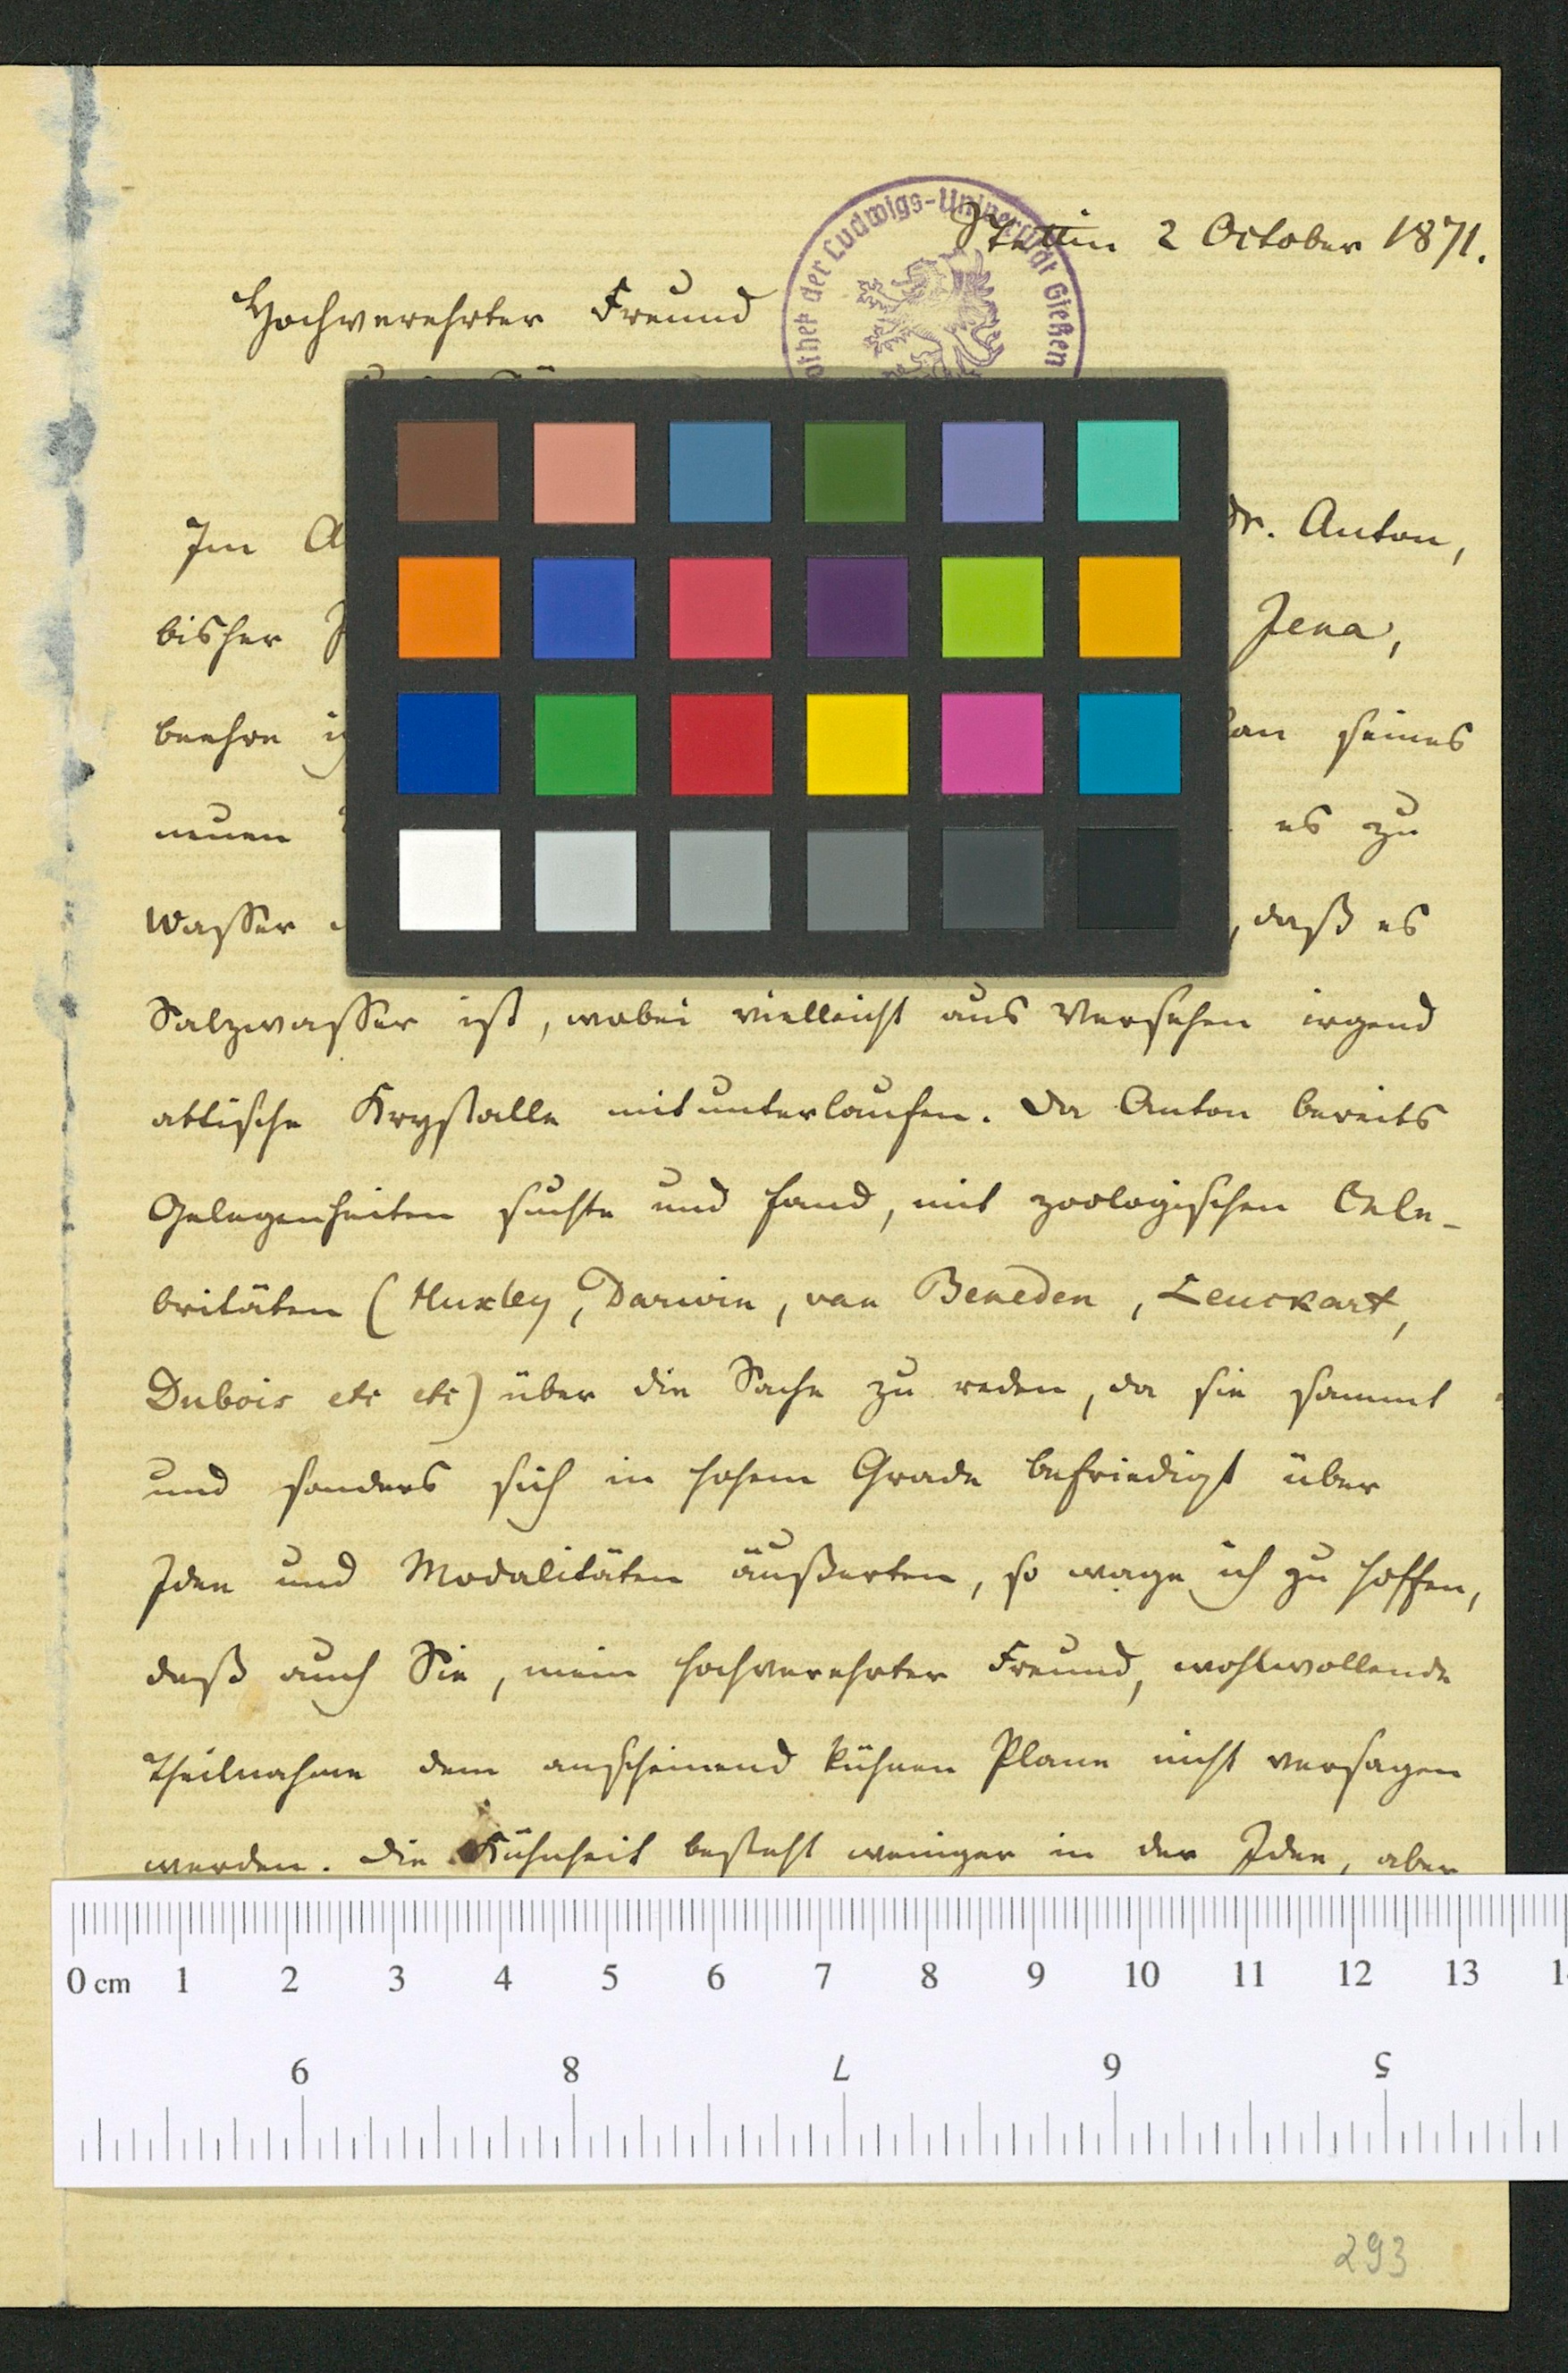 Stettin 2 October 1871.
Hochverehrter Freund
othek der Ludwigs-Universität Gießen
Im A
Dr. Anton,
bisher
Jena,
beehre
seines
neuen
es zu
Wasser
, daß es
Salzwasser ist, wobei vielleicht aus Versehen irgend
attische Krystalle mitunterlaufen. Da Anton bereits
Gelegenheiten suchte und fand, mit zoologischen Cele-
britäten (Huxley, Darwin, van Beneden, Leuckart,
Dubois etc etc) über die Sache zu reden, da sie sammt
und sonders sich in hohem Grade befriedigt über
Idee und Modalitäten äußerten, so wage ich zu hoffen,
daß auch Sie, mein hochverehrter Freund, wohlwollende
Theilnahme dem anscheinend kühnen Plane nicht versagen
werden. Die Kühnheit besteht weniger in der Idee, aber
0 cm 1 2 3 4 5 6 7 8 9 10 11 12 13
9 8 7 6 5
293